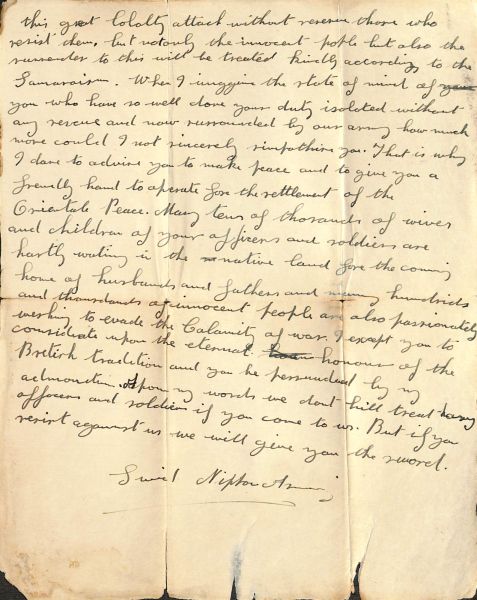 this great lolalty attack without reserve those who
resist them, but not only the innocent pople but also the
surrender to this will be treated kindly according to the
Samaraism. When I imggine the state of mind of
you who have so well done your duty isolated without
any rescue and now surrounded by our army how much
more could I not sincerely simpothize you. That is why
I dare to advise you to make peace and to give you a
frendly hand to operate for the settlement of the
Orientale Peace. Many tens of thosands of wives
and children of your officers and soldiers are
hartly waiting in the native land for the coming
home of husbands and fathers and many hundrids
and thousdands of innocent people are also passionately
wishing to evade the Calamity of war. I except you to
considirate upon the eternal honour of the
British tradition and you be persuaded by my
admonition. Upon my words we dont kill treat
officers and soldiers if you come to us. But if you
resist against us we will give you the sword.
Nippon